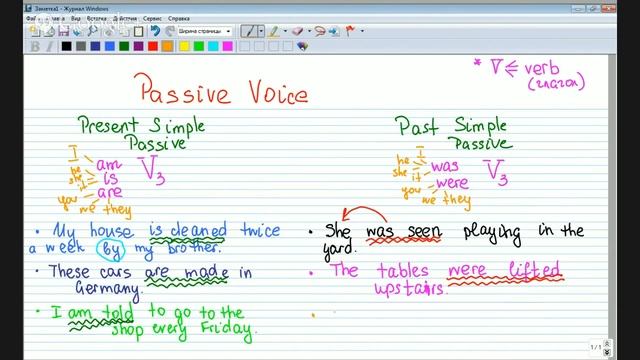 Заметка1 - Журнал Windows
Файл Правка Вид Вставка Действия Сервис Справка
Ширина страницы
Passive Voice
* V ⩽ verb
(глагол)
Present Simple
Passive
I
he
she
it
you
we they
am
is
are
V3
Past Simple
Passive
I
he
she it
you
we they
was
were
V3
• My house is cleaned twice
a week by my brother.
• These cars are made in
Germany.
• I am told to go to the
shop every Friday.
• She was seen playing in the
yard.
• The tables were lifted
upstairs.
1 / 1